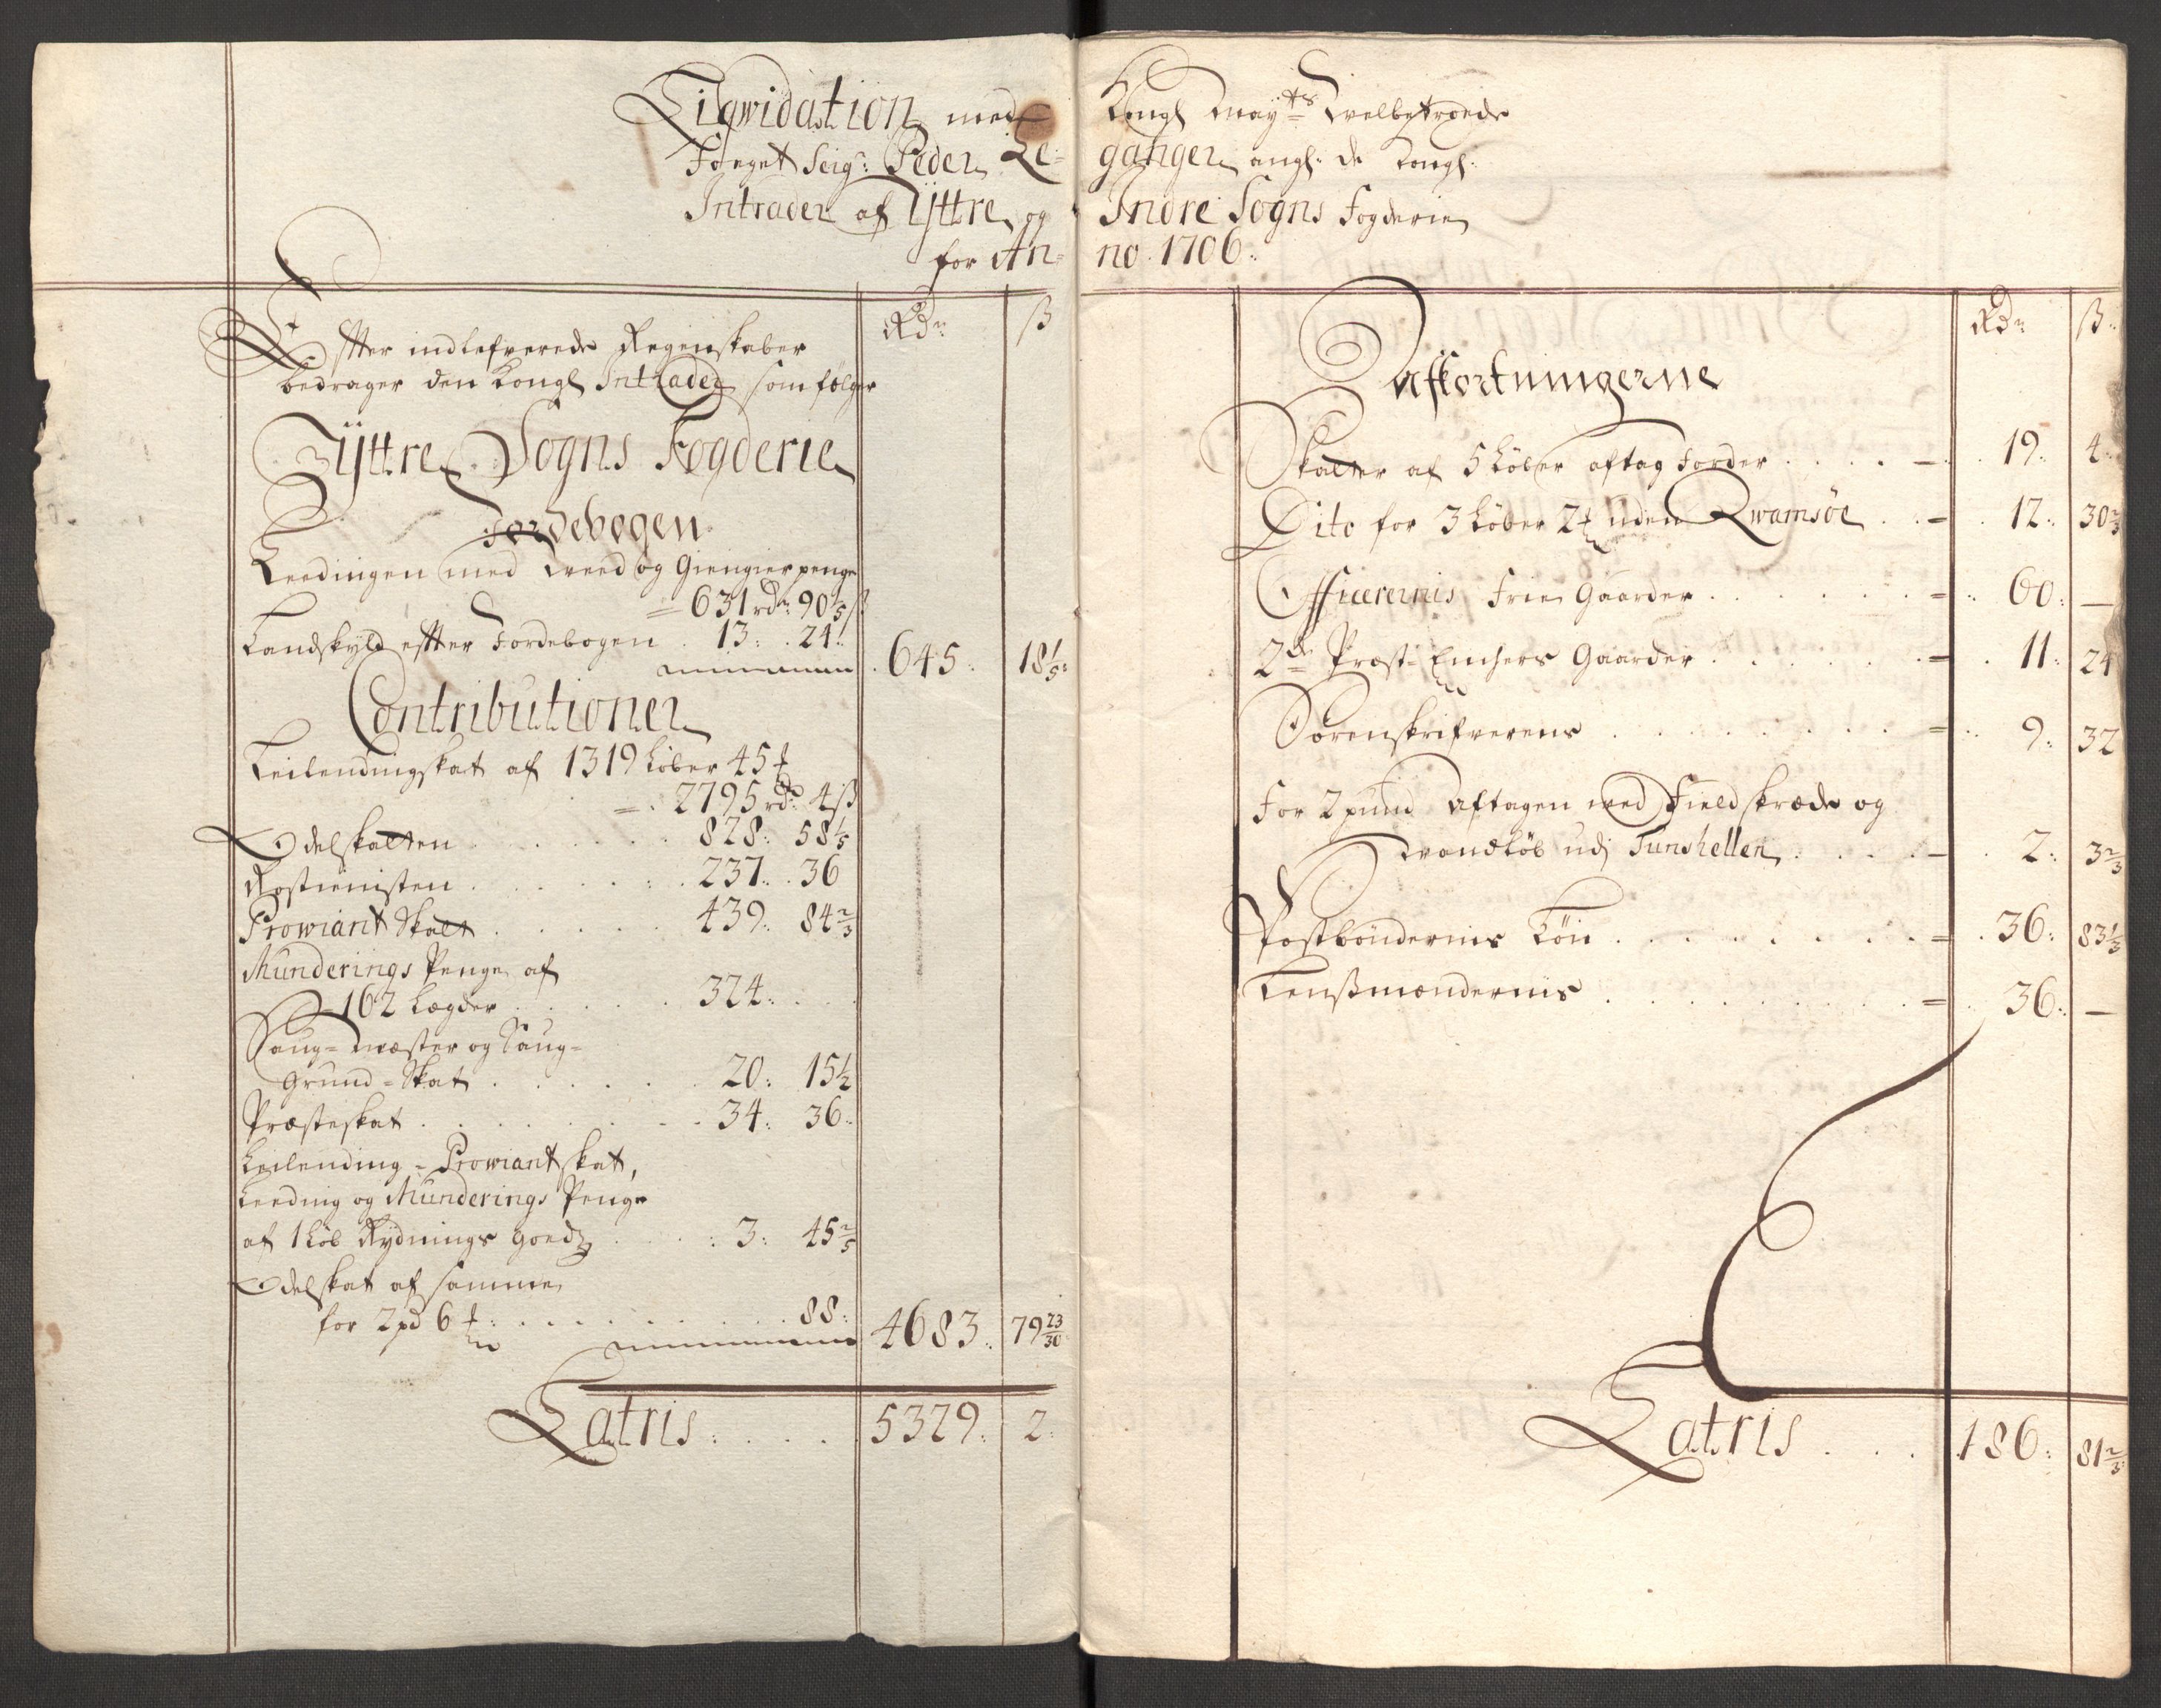 Liqvidation med Kongl Mayts Velbetroede
Foeget Seigr: Peder Leganger angl: de Kongl:
Intrader af Yttre og Indre Sogns Fogderie
for Anno 1706:
Rdr ß
Effter indlefverede Regenskaber
bedrager den Kongl Intrader som følger
Yttre Sogns Fogderie
Jordebogen
Leedingen med Weed og Giengierpenge
= 631 rdr 90 1/5 ß
Landskyld effter Jordebogen . 13: . 24: 645: 18 1/5:
Contributioner
Leilendingskat af 1319 Løber 45 ♃
= . 2795 rdr 4 ß
Odelskatten . . . . . . 828: 58 1/5
Rostienisten . . . . . . 237: . 36
Prowiant Skatt . . . . . 439: 84 2/3
Munderings Penge af
162 Lægder . . . . . 324: . . .
Saug-Mæster og Saug-
Grund-Skat . . . . . 20: 15 1/2
Præsteskat . . . . . . . 34: 36:
Leilending-Prowiant skat,
Leeding og Munderings Penge
af 1 Løb Rydnings goedz . . . : 3: 45 2/5
Odelskat af samme
for 2 pd 6 ♃: . . . . . . . 88: 4683: 79 23/30
Latris . . . . 5329: 2:
Rdr ß:
Affkortningerne
Skatter af 5 Løber aftag Jorder . . . . 19: 4:
Dito for 3 Løber 2 ♃ uden Qwamsøe . . = . 12: 30 2/3
Officerernis Frie Gaarder . . . . . . = . . 60: —
2de Præste Enchers Gaarder . . . . . . = . 11: 24
Sorenskrifverens . . . . . . . . = . . 9: 32
For 2 pund Aftagen med Fieldskrede og
Wandløb udj Tunshellen . . . . = . 2: 3 2/3
Postbøndernis Løn . . . . . . . = . 36: 83 1/3
Lensmændernis . . . . . . . . = . 36: —
Latris . . . 186: 81 2/3: